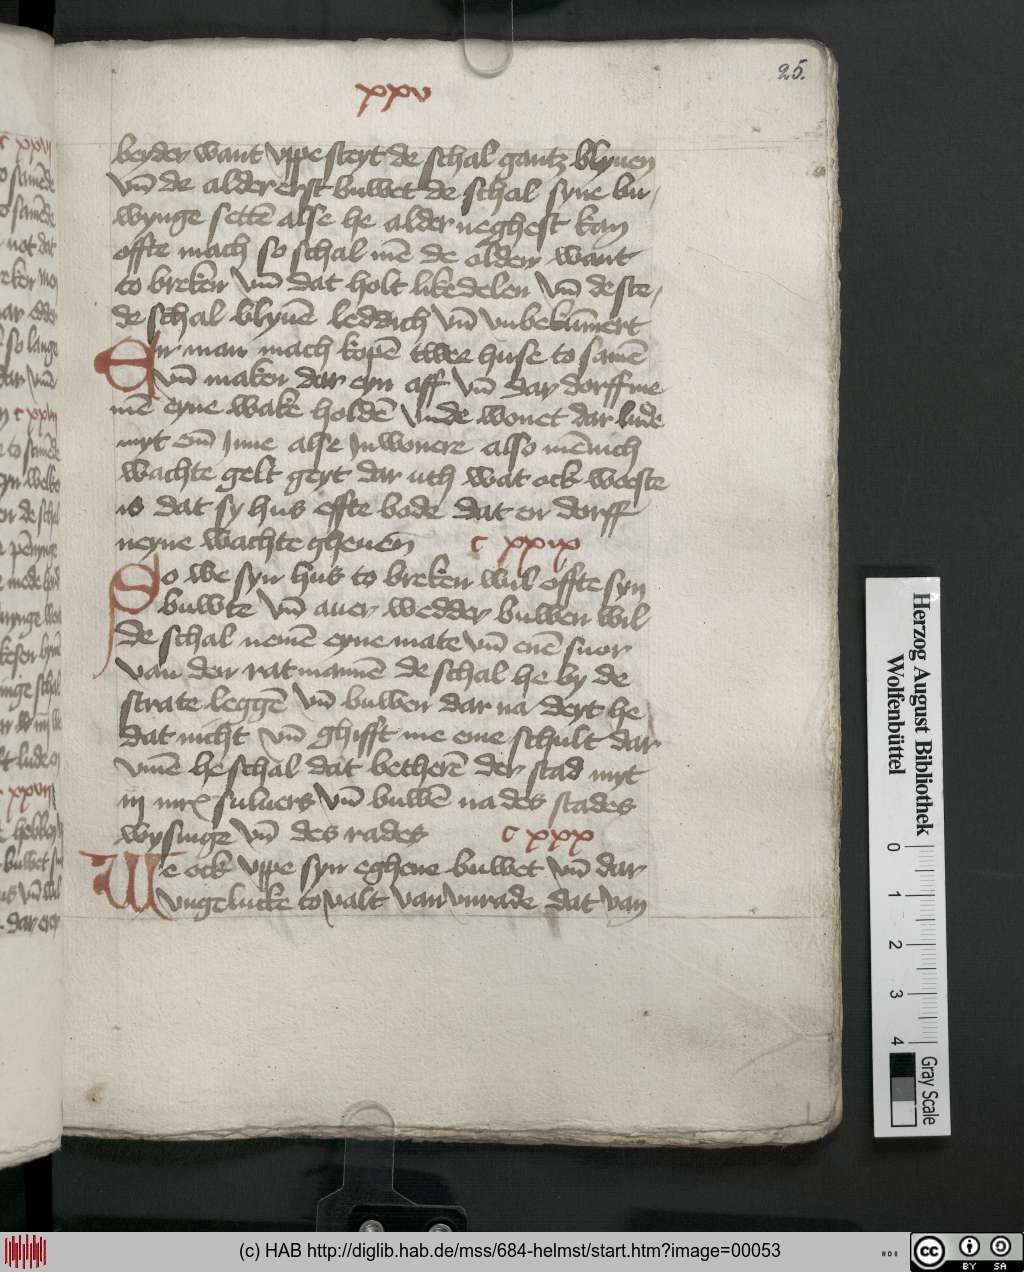 25.
xxv
beyder want vppe steyt de schal gantz blyuen
vn̄ de alder erst buwet de schal syne bu-
wynge settē alse he alder neghest kan
offte mach so schal mē de olden want
to breken vn̄ dat holt likedelen vn̄ de ste-
de schal blyuē leddich vn̄ vnbekūmert
Eyn man mach kopē twer huse to samē
vn̄ maken dar eyn aff vn̄ dar dorff me
mē eyne wake holdē vnde wonet dar lude
myt em̄ Inne alse Inwonere also mēnich
wachte gelt geyt dar uth wat ock woste
is dat sy hus effte bode dat en dorff
neyne wachte gheuen c xxix
So we syn hus to breken wil offte syn
buwte vn̄ auer wedder buwen wil
de schal nemē eyne mate vn̄ enē snor
van den rat mannē de schal he by de
strate leggē vn̄ buwen dar na deyt he
dat nicht vn̄ ghifft me eme schult dar
vmē he schal dat betherē der stad myt
iij mrc suluers vn̄ buwē na des stades
wysinge vn̄ des rades c xxx
We ock vppe syn eghene buwet vn̄ dar
vngelucke to valt van vnrade dat van
Herzog August Bibliothek
Wolfenbüttel
0 1 2 3 4
Gray Scale
(c) HAB http://diglib.hab.de/mss/684-helmst/start.htm?image=00053
cc BY SA